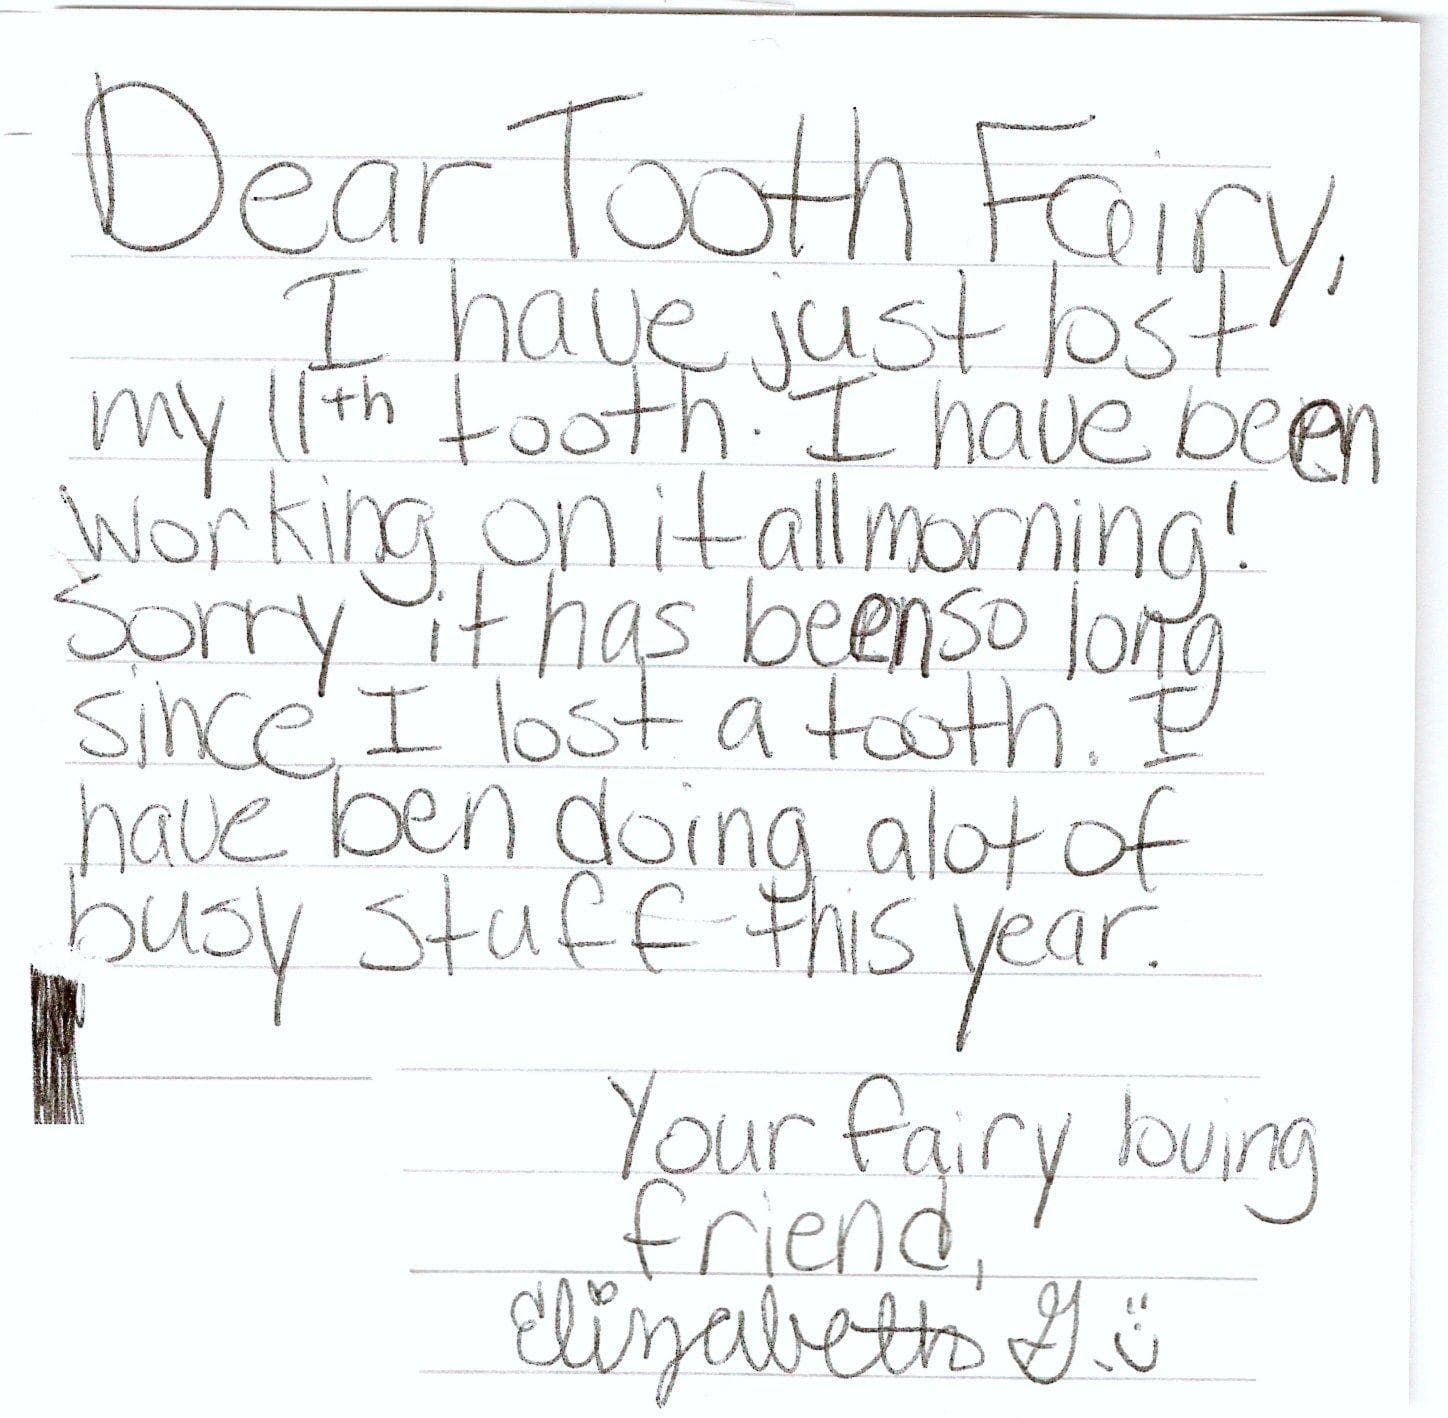 Dear Tooth Fairy,
I have just lost
my 11th tooth. I have been
working on it all morning!
Sorry it has been so long
since I lost a tooth. I
have ben doing alot of
busy stuff this year.
Your fairy loving
friend,
Elizabeth G. :)